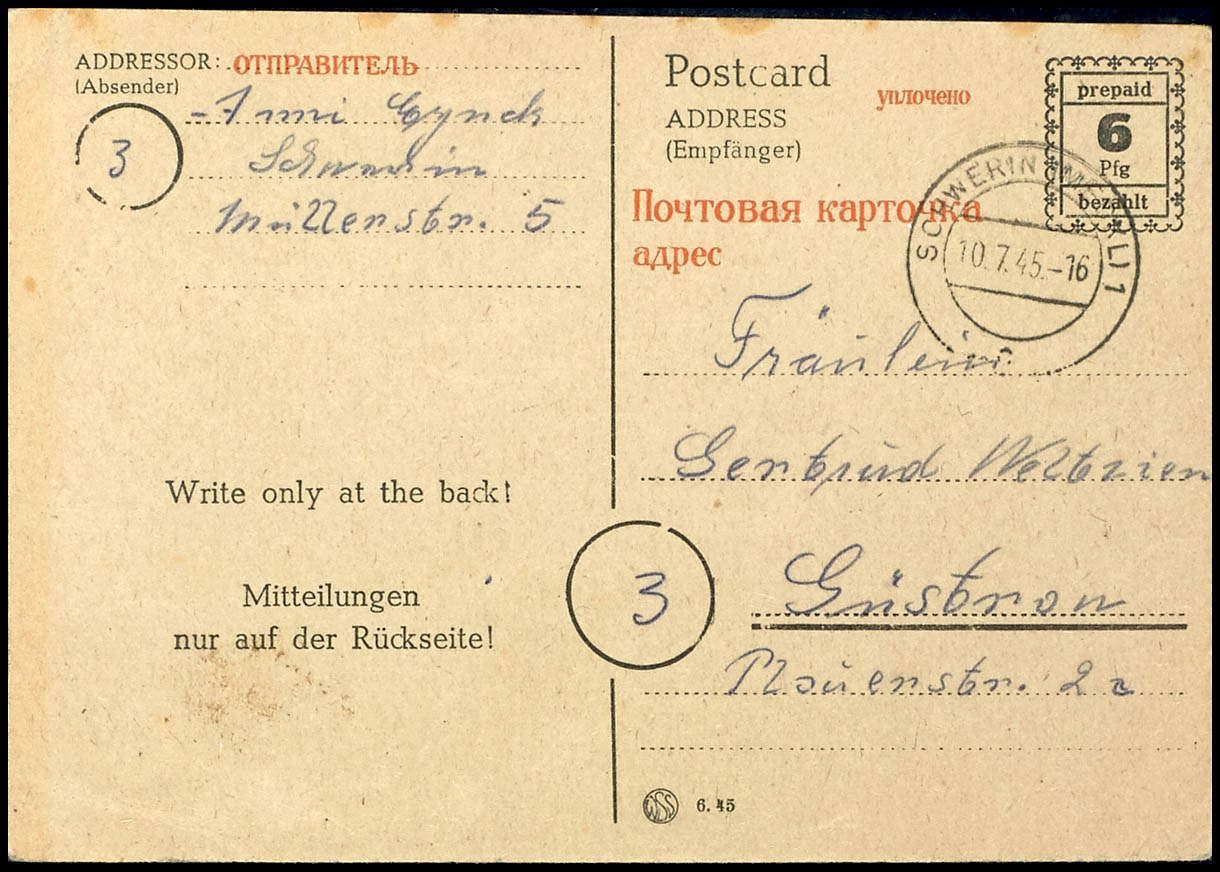 ADDRESSOR: ОТПРАВИТЕЛЬ
(Absender)
Schwerin
3
Müllerstr. 5
Write only at the back!
Mitteilungen
nur auf der Rückseite!
Postcard
уплочено
ADDRESS
(Empfänger)
prepaid
6
Pfg
bezahlt
Почтовая карточка
адрес
SCHWERIN (MECKL) 1
10.7.45.-16
Fräulein
Gertrud Weltzien
3
Güstrow
Plauerstr. 2a
WSS 6.45